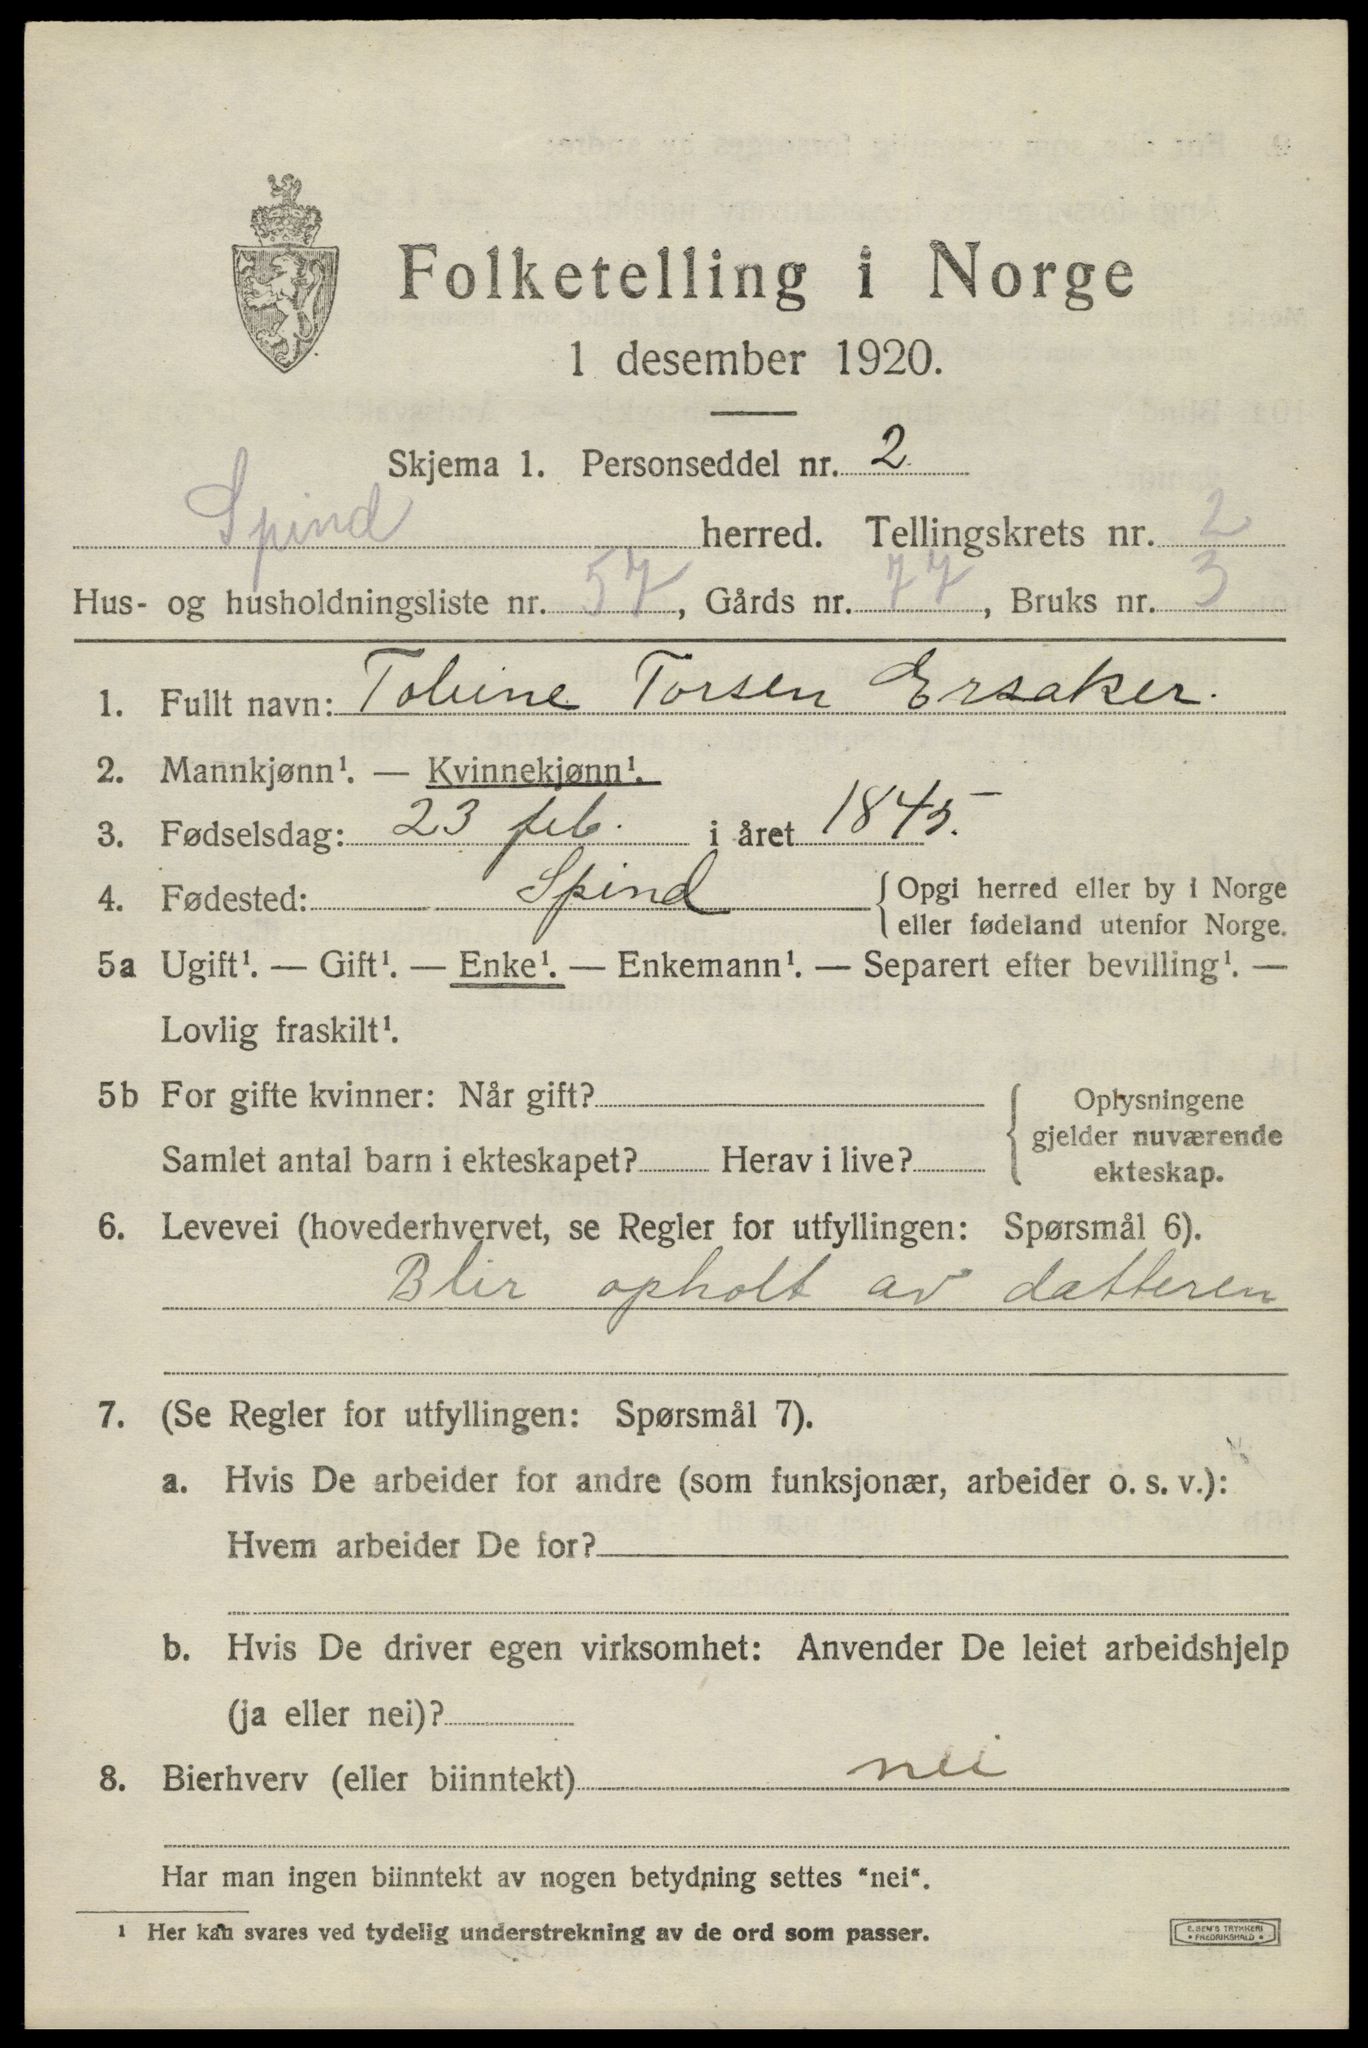 Folketelling i Norge
1 desember 1920.
Skjema 1. Personseddel nr. 2
Spind herred. Tellingskrets nr. 2
Hus- og husholdningsliste nr. 57, Gårds nr. 77, Bruks nr. 3
1. Fullt navn: Tobine Torsen Ersaker.
2. Mannkjønn¹. — Kvinnekjønn¹.
3. Fødselsdag: 23 feb. i året 1845.
4. Fødested: Spind { Opgi herred eller by i Norge
eller fødeland utenfor Norge.
5a Ugift¹. — Gift¹. — Enke¹. — Enkemann¹. — Separert efter bevilling¹. —
Lovlig fraskilt¹.
5b For gifte kvinner: Når gift?
Samlet antal barn i ekteskapet? Herav i live?
{ Oplysningene
gjelder nuværende
ekteskap.
6. Levevei (hovederhvervet, se Regler for utfyllingen: Spørsmål 6).
Blir opholt av datteren
7. (Se Regler for utfyllingen: Spørsmål 7).
a. Hvis De arbeider for andre (som funksjonær, arbeider o. s. v.):
Hvem arbeider De for?
b. Hvis De driver egen virksomhet: Anvender De leiet arbeidshjelp
(ja eller nei)?
8. Bierhverv (eller biinntekt) nei
Har man ingen biinntekt av nogen betydning settes "nei".
¹ Her kan svares ved tydelig understrekning av de ord som passer.
E. SEM'S TRYKKERI
* FREDRIKSHALD *